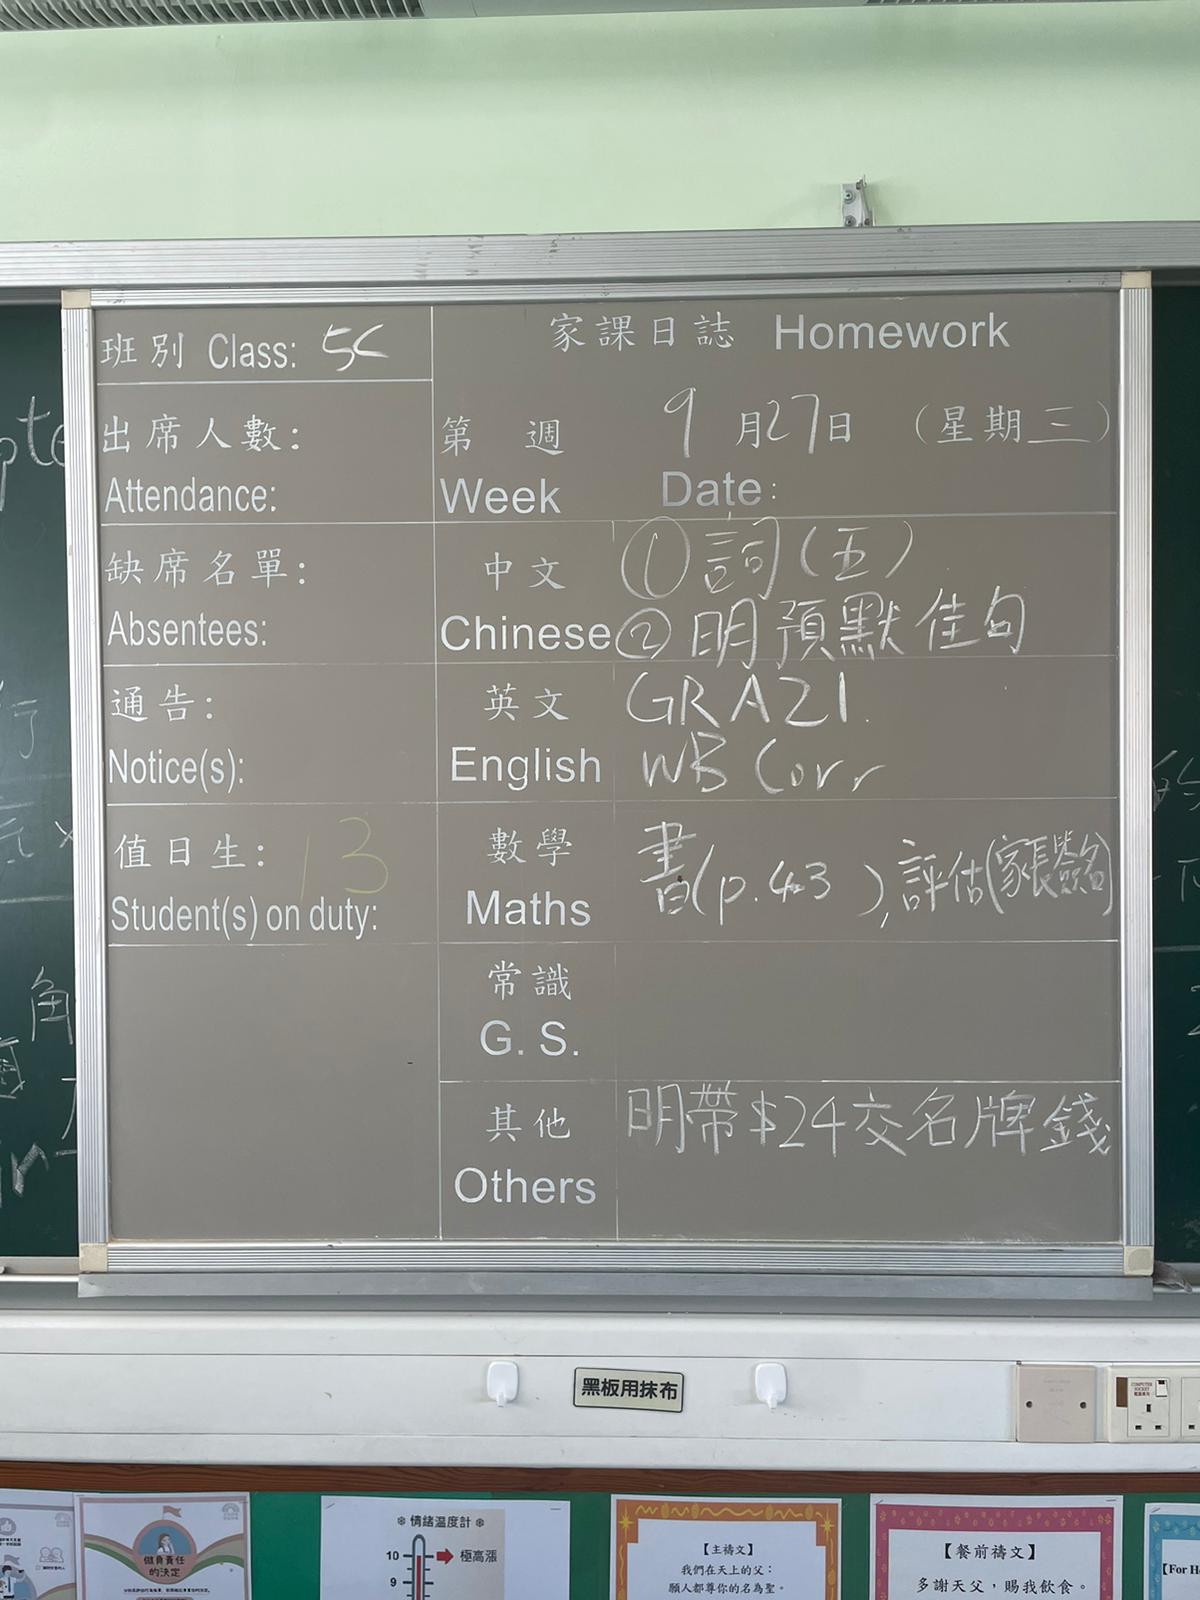 班別 Class: 5C
家課日誌 Homework
出席人數:
Attendance:
第 週 9月27日 (星期三)
Week Date:
缺席名單:
Absentees:
中文 ①詞(五)
Chinese ②明預默佳句
通告:
Notice(s):
英文 GRA21.
English WB Corr
值日生: 13
Student(s) on duty:
數學
Maths 書(p.43), 評估(家長簽名)
常識
G. S.
其他 明帶$24交名牌錢
Others
黑板用抹布
COMPUTER
SOCKET
做負責任
的決定
❄情緒溫度計❄
10 極高漲
9
【主禱文】
我們在天上的父：
願人都尊你的名為聖。
【餐前禱文】
多謝天父，賜我飲食。
【For He